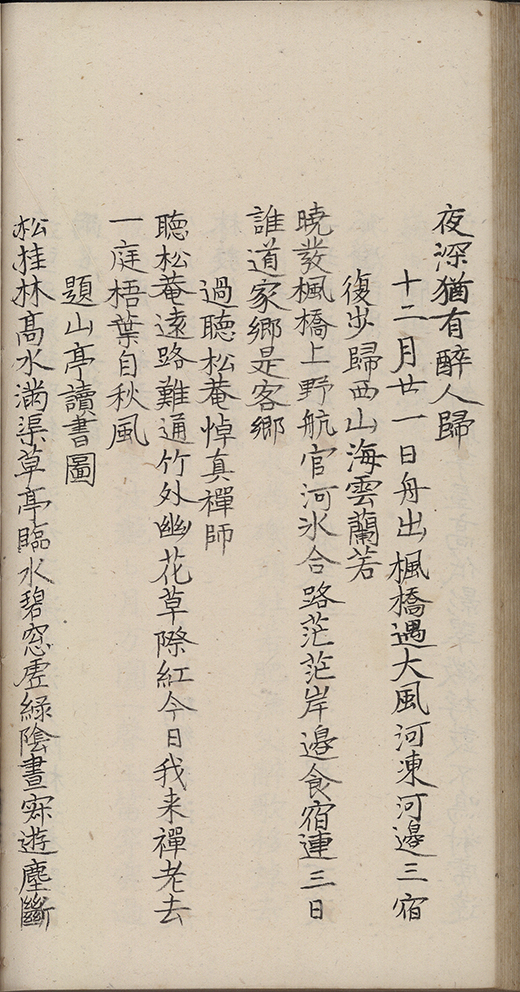 夜深猶有醉人歸
十二月廿一日舟出楓橋遇大風河凍河邊三宿
復步歸西山海雲蘭若
曉發楓橋上野航官河氷合路茫茫岸邊食宿連三日
誰道家鄉是客鄉
過聽松菴悼真禪師
聽松菴遠路難通竹外幽花草際紅今日我来禪老去
一庭梧葉自秋風
題山亭讀書圖
松桂林髙水滿渠草亭臨水碧窓虗綠陰晝寂遊塵斷